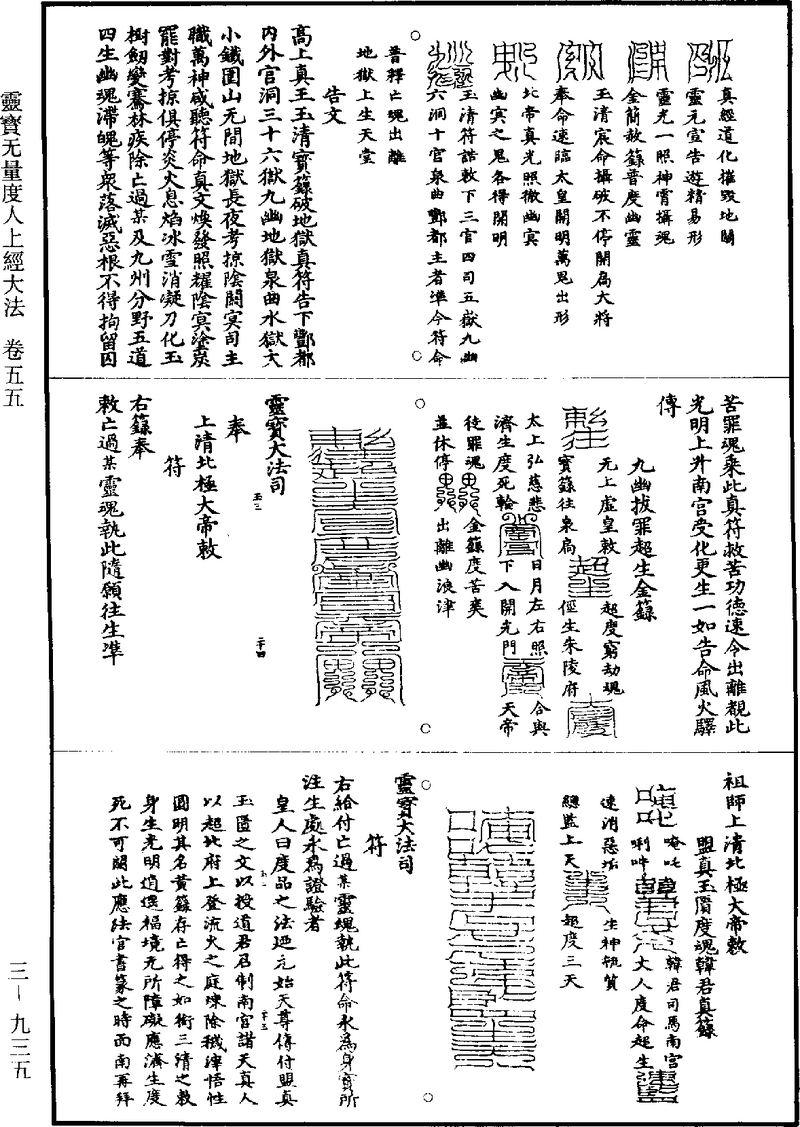 真經道化摧毀地關
靈元宣告遊精易形
靈光一照神霄攝魂
金簡赦籙普度幽靈
玉清宸命攝破不停開爲大將
奉命速臨太皇開明萬鬼出形
北帝真光照徹幽冥
幽冥之鬼各得開明
玉清符誥敕下三官四司五嶽九幽
六洞十官泉曲酆都主者準今符命
普釋亡魂出離
地獄上生天堂
告文
高上真王玉清寶籙破地獄真符告下酆都
內外官洞三十六獄九幽地獄泉曲水獄大
小鐵圍山无間地獄長夜考掠陰關冥司主
職萬神咸聽符命真文煥發照耀陰冥塗炭
罷對考掠俱停炎火息焰冰雪消凝刀化玉
樹劒變騫林疾除亡過某及九州分野五道
四生幽魂滯魄等衆落滅惡根不得拘留囚
苦罪魂乘此真符救苦功德速令出離覩此
光明上升南宮受化更生一如告命風火驛
傳
九幽拔罪超生金籙
无上虛皇敕 超度窮劫魂
寶籙往泉扃 徑生朱陵府
太上弘慈悲 日月左右照 合與
濟生度死輪 下入開光門 天帝
徒罪魂 金籙度苦爽
並休停 出離幽浪津
靈寶大法司
奉
上清北極大帝敕
符
右籙奉
敕亡過某靈魂執此隨願往生準
祖師上清北極大帝敕
盟真玉匱度魂韓君真籙
唵吒 韓君司馬南宮
唎吽 大人度命超生
速消惡垢 生神執質
總監上天 超度三天
靈寶大法司
符
右給付亡過某靈魂執此符命永爲身寶所
注生處永爲證驗者
皇人曰度品之法迺元始天尊傳付盟真
玉匱之文以授道君召制南宮諸天真人
以起此府上登流火之庭煉除穢滓悟性
圓明其名黃籙存亡得之如銜三清之敕
身生光明逍遙福境无所障礙應濟生度
死不可闕此應法官書篆之時西南再拜
靈寶无量度人上經大法 卷五五
三—九三五